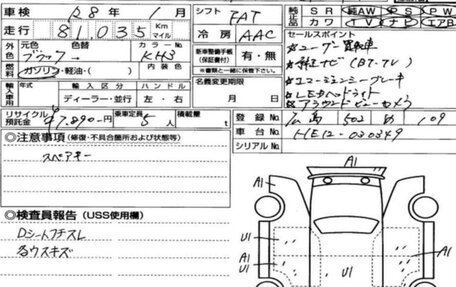 車検 R8年 1月
走行 81,035 Km マイル
シフト FAT
冷房 AAC
外色 元色 色替 カラーNo.
ブラック KH3
燃料 ガソリン・軽油・( ) 内装色
新車整備手帳(保証書付) 有・無
輸入車用 年式 輸入区分 ハンドル
ディーラー・並行 左・右
名義変更期限
月 日
リサイクル預託金 ¥7,890円 乗車定員 5人 積載量 t
純正品 SR 純AW PS PW
カワ TV ナビ エアB
セールスポイント
ユーザー買取車
純正ナビ(BT・TV)
エマージェンシーブレーキ
LEDヘッドライト
アラウンドビューカメラ
登録No. 広島 502 め 109
車台No. HE12-030349
シリアルNo.
◎注意事項(修復・不具合箇所および状態等)
スペアキー
◎検査員報告(USS使用欄)
Dシートフチスレ
各ウスキズ
A1
A1
A1
U1
U1
A1
U1